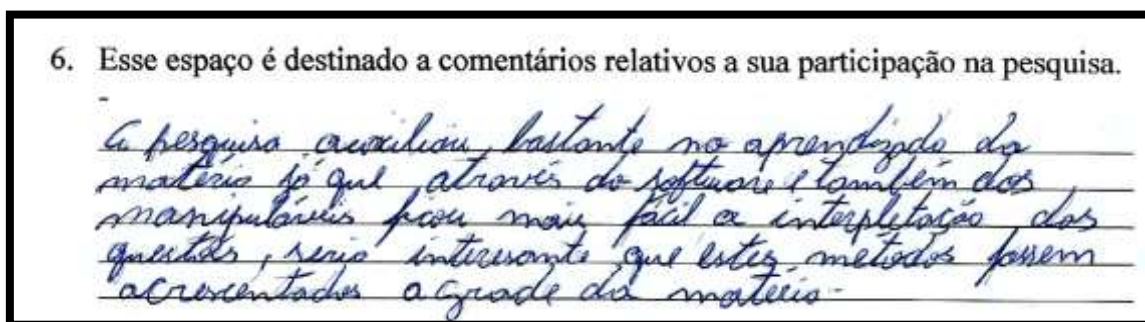 6. Esse espaço é destinado a comentários relativos a sua participação na pesquisa.
-
A pesquisa auxiliou bastante no aprendizado da
matéria já que através do software e também dos
manipuláveis ficou mais fácil a interpletação das
questões, seria interessante que estes métodos fossem
acrescentados a grade da matéria.